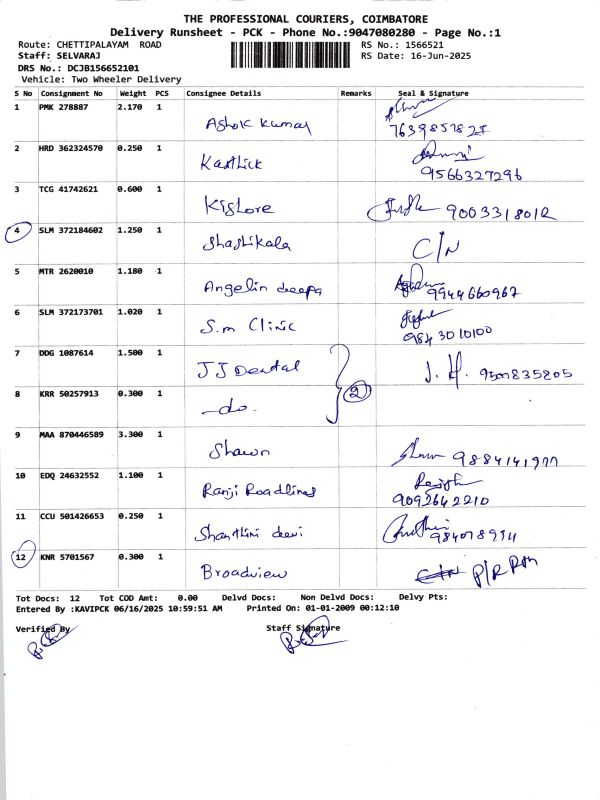 THE PROFESSIONAL COURIERS, COIMBATORE
Delivery Runsheet - PCK - Phone No.:9047080280 - Page No.:1
Route: CHETTIPALAYAM ROAD RS No.: 1566521
Staff: SELVARAJ RS Date: 16-Jun-2025
DRS No.: DCJB156652101
Vehicle: Two Wheeler Delivery
S No Consignment No Weight PCS Consignee Details Remarks Seal & Signature
1 PMK 278887 2.170 1 Ashok Kumar
2 HRD 362324570 0.250 1 Karthick 9566327296
3 TCG 41742621 0.600 1 Kishore 9003318012
4 SLM 372184602 1.250 1 Shashikala C/N
5 MTR 2620010 1.180 1 Angelin deepa 9944660967
6 SLM 372173701 1.020 1 S.m Clinic 9843010100
7 DDG 1087614 1.500 1 JJ Dental 2 J. H. 9500835805
8 KRR 50257913 0.300 1 -do.
9 MAA 870446589 3.300 1 Shawn 9884141977
10 EDQ 24632552 1.100 1 Ranji Roadlines 9092642210
11 CCU 501426653 0.250 1 Shanthini devi
12 KNR 5701567 0.300 1 Broadview C/N P/R
Tot Docs: 12 Tot COD Amt: 0.00 Delvd Docs: Non Delvd Docs: Delvy Pts:
Entered By :KAVIPCK 06/16/2025 10:59:51 AM Printed On: 01-01-2009 00:12:10
Verified By Staff Signature